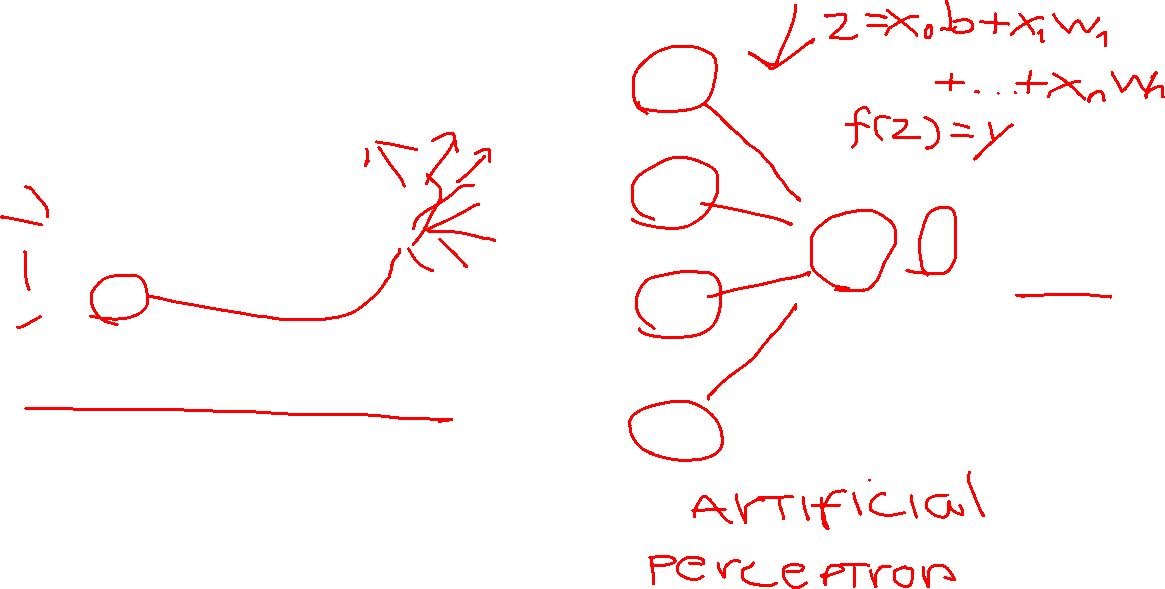 z=x₀b+x₁w₁
+...+xₙwₙ
f(z)=y
Artificial
Perceptron